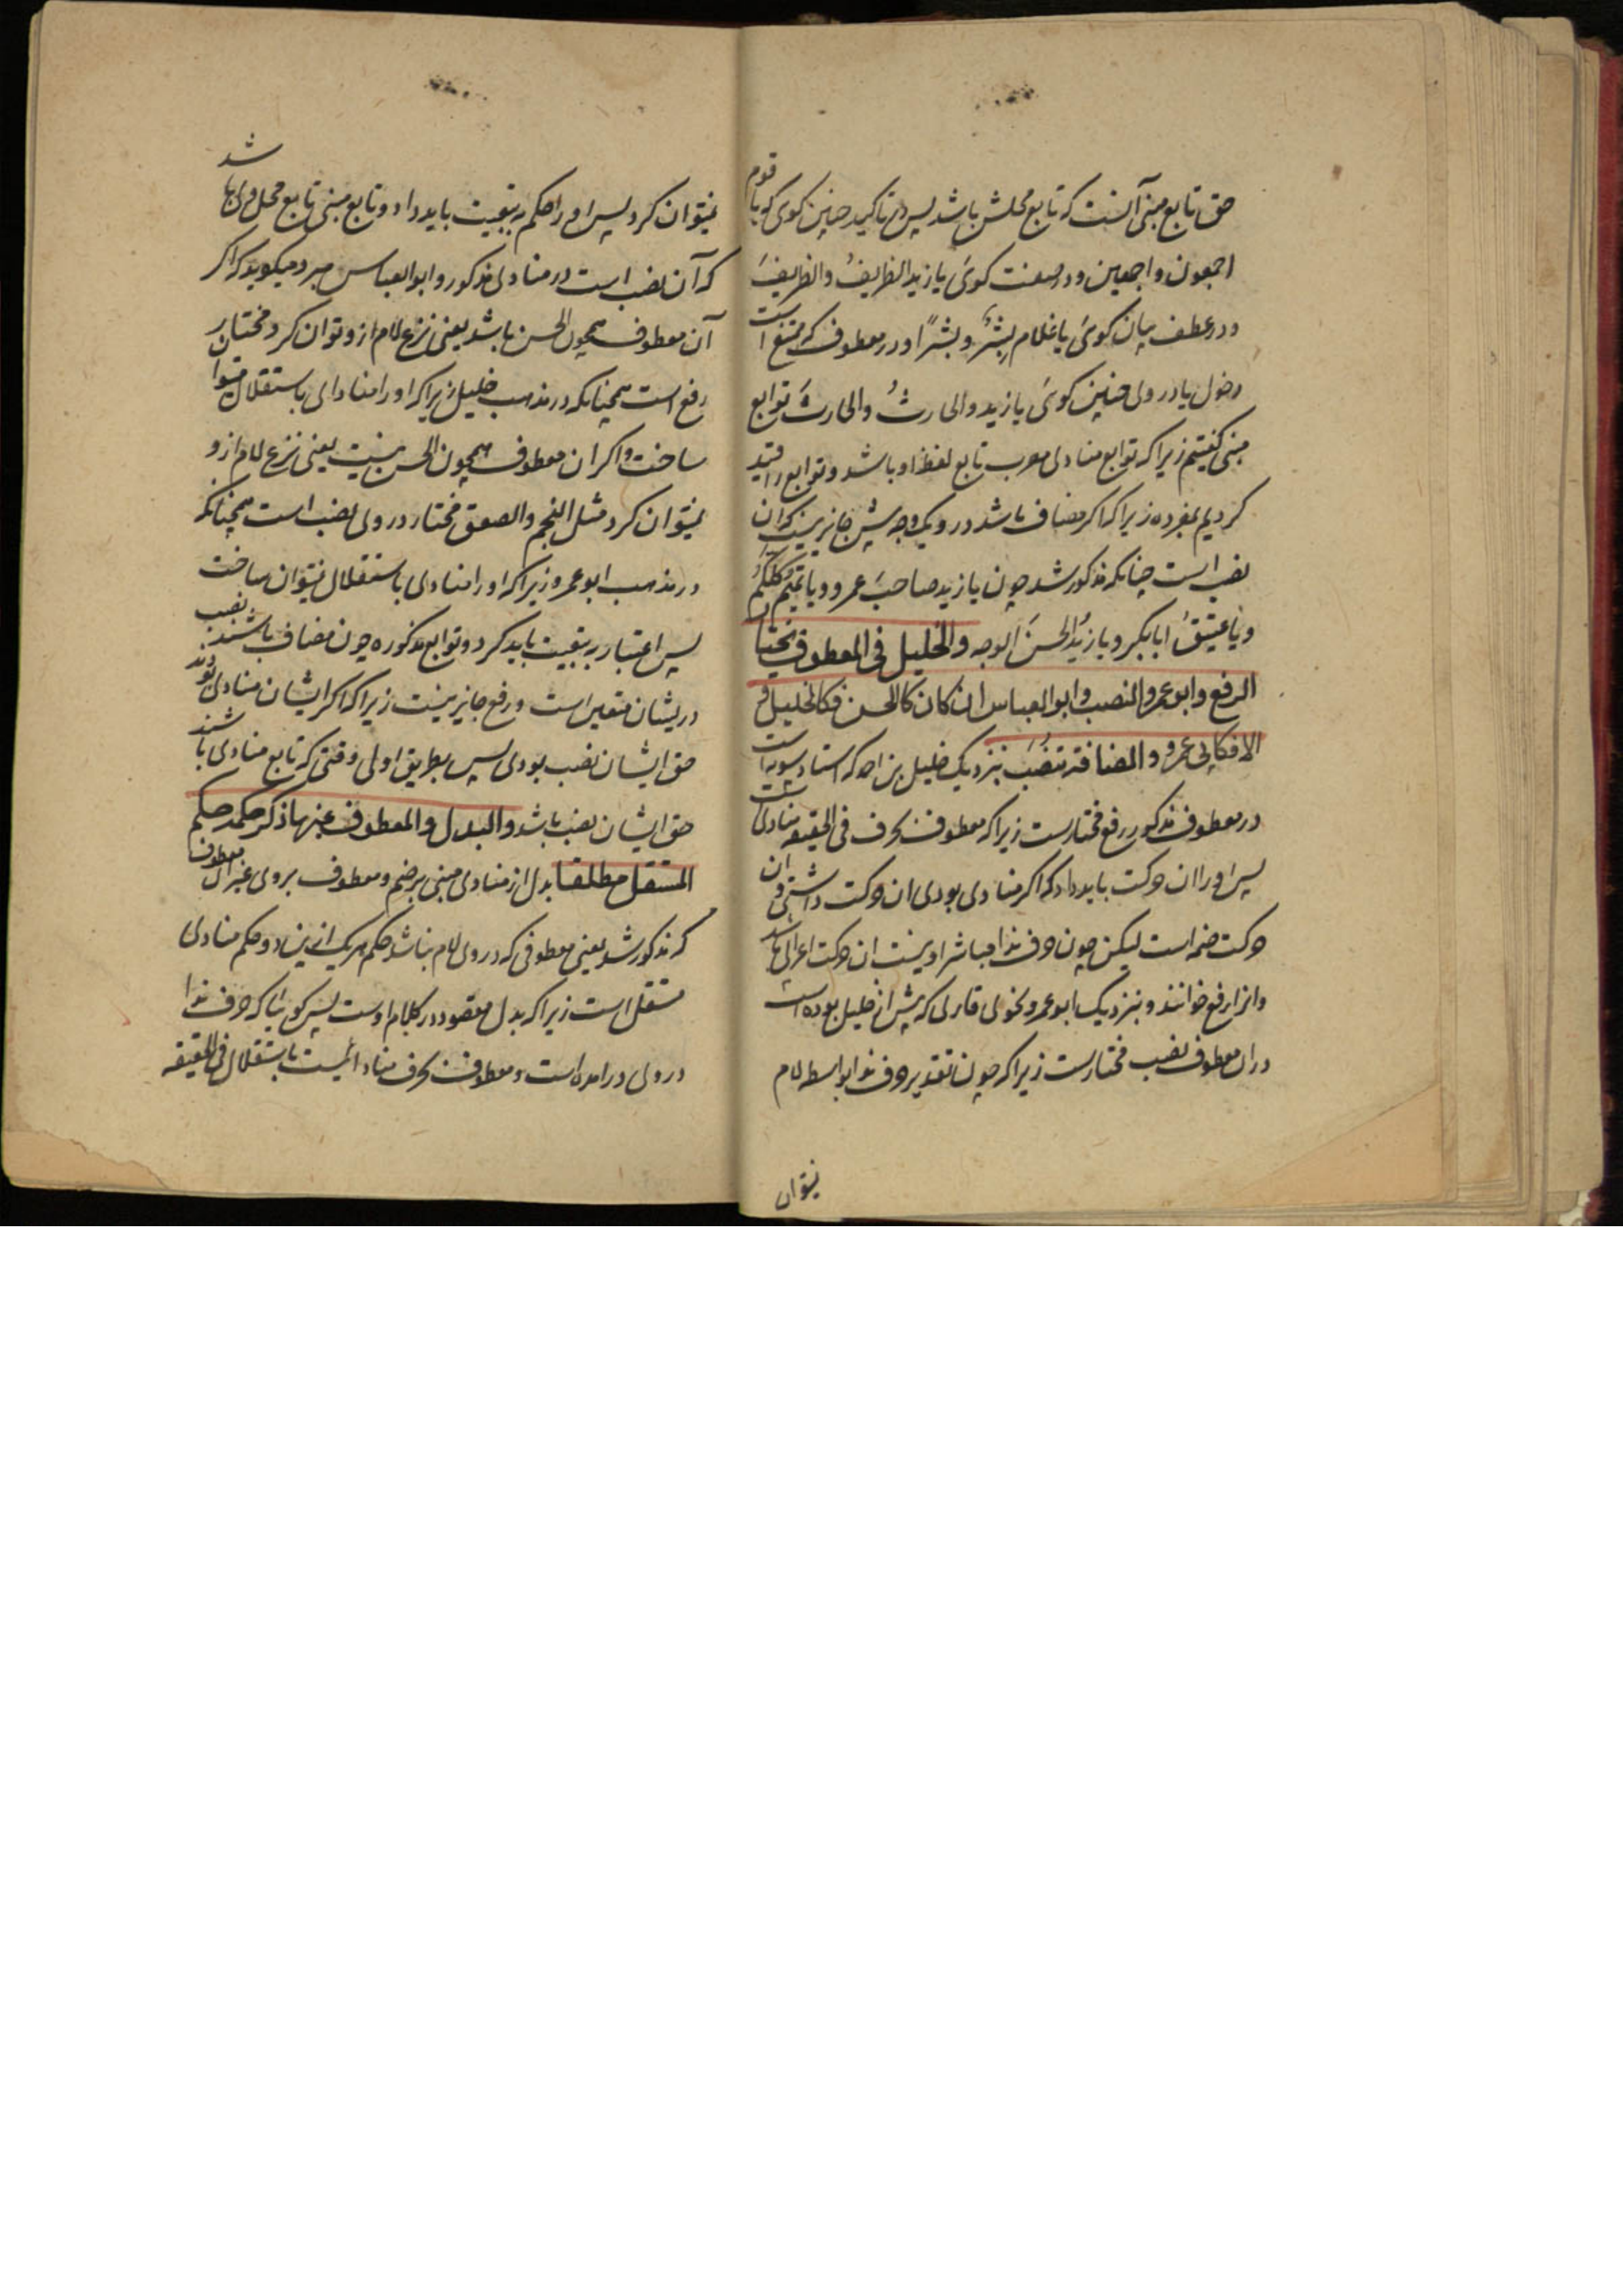 حق تابع مبنی آنست که تابع محلش باشد پس در تاکید چنین کوی که یا قوم
اجمعون و اجمعین و در صفت کوی یا زید الظریفُ والظریفَ
و در عطف بیان کوی یا غلام بشرٌ و بشرًا و در معطوف که ممتنع است
دخول یا در ولی چنین کوی یا زید والحارثُ والحارثَ توابع
مبنی کفتیم زیرا که توابع منادلی معرب تابع لفظ او باشد و توابع را قید
کردیم بمفرده زیرا که اکر مضاف باشد در و یک وجه بیش جایز نیست که ان
نصب است چنانکه مذکور شد چون یا زید صاحبَ عمرو و یا تمیم کلکم
و یا عتیقُ ابابکر و یا زیدُ الحسنَ الوجه والخلیل فی المعطوف یختار
الرفع وابو عمرو النصب وابو العباس ان کان کالحسن فکالخلیل و
الا فکابی عمرو والمضافة تنصب نزدیک خلیل بن احمد که استاد سیبویه است
در معطوف مذکور رفع مختارست زیرا که معطوف بحرف فی الحقیقه منادلی است
پس او را ان حرکت باید داد که اکر منادی بودی ان حرکت داشتی و ان
حرکت ضمه است لیکن چون حرف ندا مباشر او نیست ان حرکت اعرابی باشد
و انرا رفع خوانند و نزدیک ابو عمرو نحوی قاری که پیش از خلیل بوده است
دران معطوف نصب مختارست زیرا که چون تقدیر حرف ندا بواسطه لام
نیتوان
نیتوان کرد پس او را حکم به تبعیت باید داد و تابع مبنی تابع محل ولی باشد
که آن نصب است در منادلی مذکور و ابوالعباس مبرد میکوید که اکر
آن معطوف همچون الحسن باشد یعنی نزع لام ازو توان کرد مختار در
رفع است همچنانکه در مذهب خلیل زیرا که او را منادلی باستقلال میتوان
ساخت و اکر ان معطوف همچون الحسن نیست یعنی نزع لام ازو
نیتوان کرد مثل النجم والصعق مختار در ولی نصب است همچنانکه
در مذهب ابو عمرو زیرا که او را منادلی باستقلال نیتوان ساخت
پس اعتبار به تبعیت باید کرد و توابع مذکوره چون مضاف باشند نصب
دریشان متعین است و رفع جایز نیست زیرا که اکر ایشان منادلی بودند
حق ایشان نصب بودی پس بطریق اولی وقتی که تابع منادی باشند
حق ایشان نصب باشد والبدل والمعطوف غیر ما ذکر حکمه حکم
المستقل مطلقا بدل از منادلی مبنی بر ضم و معطوف بر وی غیر ان معطوف
که مذکور شد یعنی معطوفی که در وی لام نباشد حکم هر یک ازین دو حکم منادلی
مستقل است زیرا که بدل مقصود در کلام اوست پس کوییا که حرف ندا
در ولی درامده است و معطوف بحرف منادائیست باستقلال فی الحقیقه